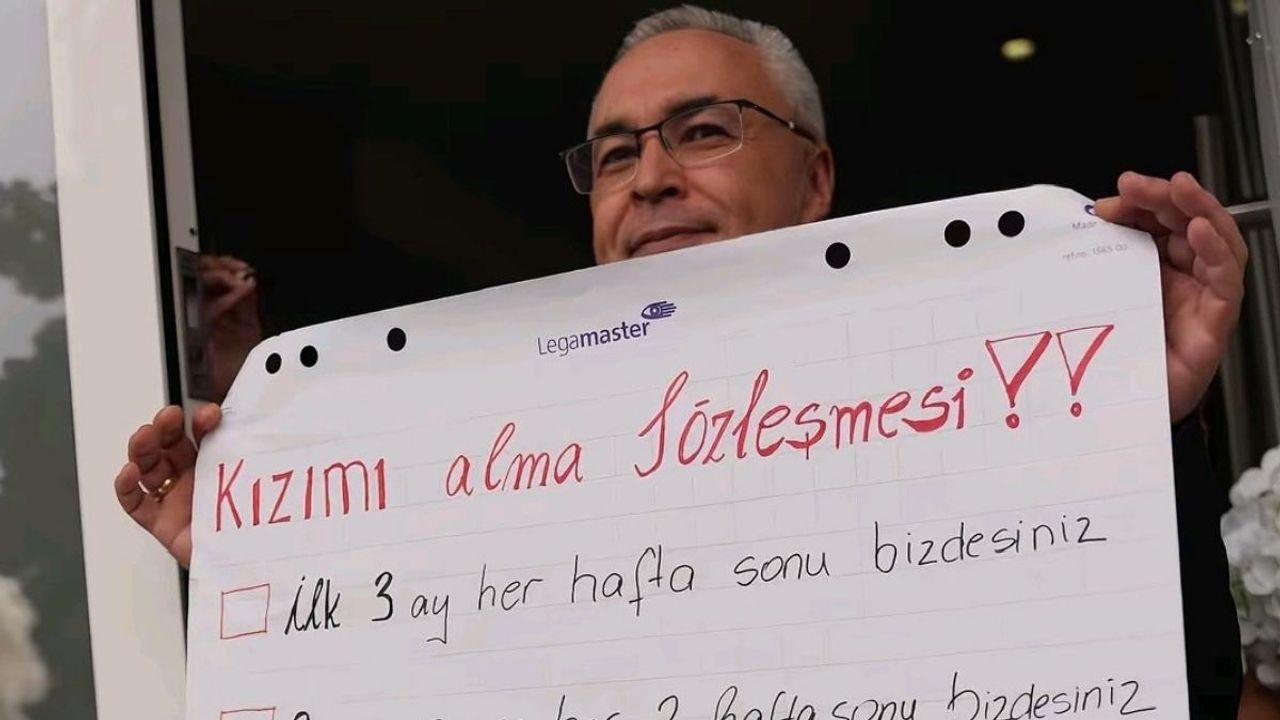 Legamaster
Kızımı alma Sözleşmesi !!
İlk 3 ay her hafta sonu bizdesiniz
2 hafta sonu bizdesiniz